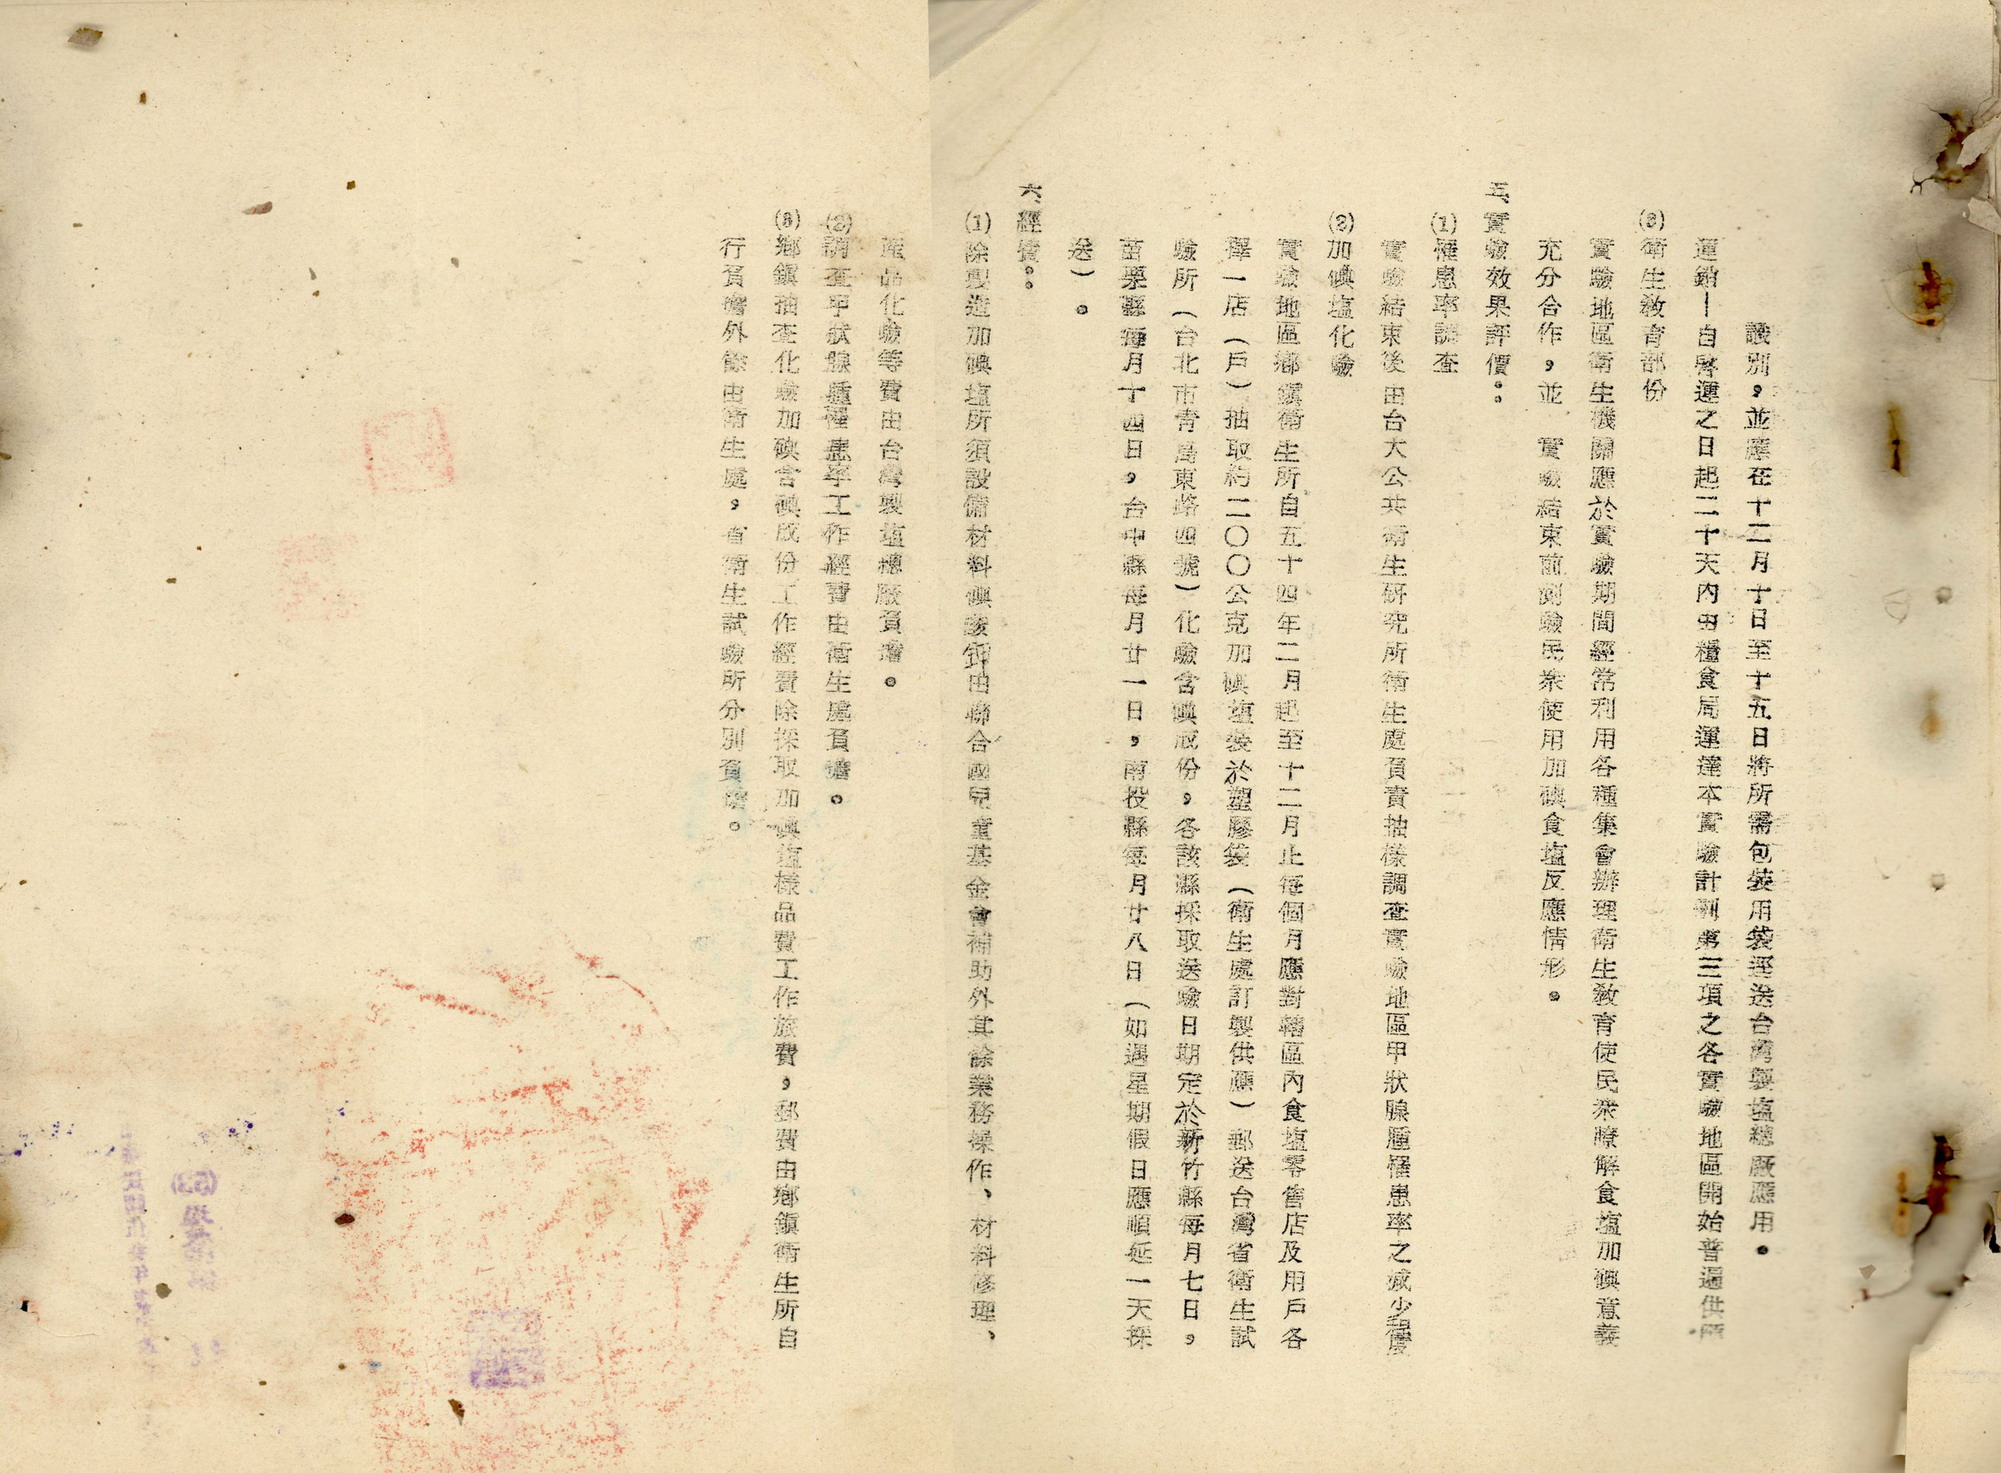 識別，並應在十二月十日至十五日將所需包裝用袋逕送台灣製塩總廠應用。
運銷—自啓運之日起二十天內由糧食局運達本實驗計劃第三項之各實驗地區開始普遍供
(3)衛生敎育部份
實驗地區衛生機關應於實驗期間經常利用各種集會辦理衛生敎育使民衆瞭解食塩加碘意義
充分合作，並 實驗結束前測驗民衆使用加碘食塩反應情形。
五、實驗效果評價：
(1)罹患率調查
實驗結束後由台大公共衛生研究所衛生處負責抽樣調查實驗地區甲狀腺腫罹患率之減少程度
(2)加碘塩化驗
實驗地區鄉鎭衛生所自五十四年二月起至十二月止每個月應對轄區內食塩零售店及用戶各
擇一店（戶）抽取約二〇〇公克加碘塩裝於塑膠袋（衛生處訂製供應）郵送台灣省衛生試
驗所（台北市靑島東路四號）化驗含碘成份，各該縣採取送驗日期定於新竹縣每月七日，
苗栗縣每月十四日，台中縣每月廿一日，南投縣每月廿八日（如遇星期假日應順延一天採
送）。
六、經費：
(1)除製造加碘塩所須設備材料碘酸鉀由聯合國兒童基金會補助外其餘業務操作、材料修理、
產品化驗等費由台灣製塩總廠負擔。
(2)調查甲狀腺腫罹患率工作經費由衛生處負擔。
(3)鄉鎭抽查化驗加碘含碘成份工作經費除採取加碘塩樣品費工作旅費，郵費由鄉鎭衛生所自
行負擔外餘由衛生處，省衛生試驗所分別負擔。